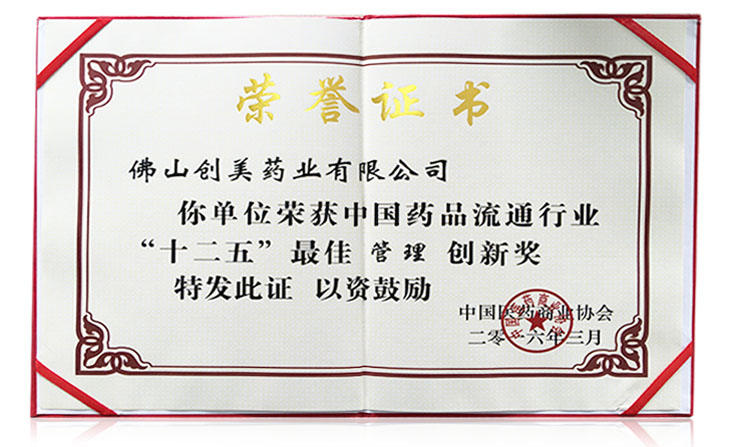 荣誉证书
佛山创美药业有限公司
你单位荣获中国药品流通行业
“十二五”最佳 管理 创新奖
特发此证 以资鼓励
中国医药商业协会
二零一六年三月
中国医药商业协会